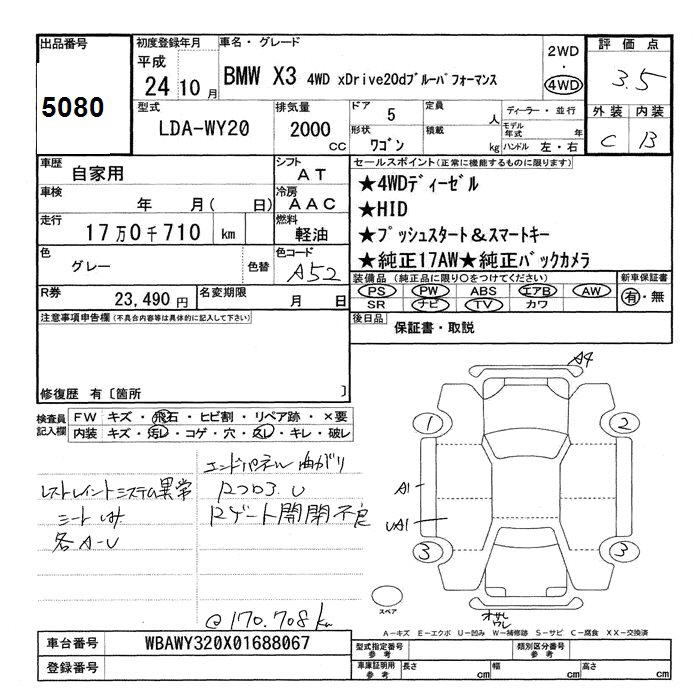 出品番号
5080
初度登録年月
平成
24 10 月
車名・グレード
BMW X3 4WD xDrive20dブルーパフォーマンス
2WD
・
4WD
評価点
3.5
外装 内装
C B
型式
LDA-WY20
排気量
2000
CC
ドア 5
形状
ワゴン
定員 人
積載 kg
ディーラー・並行
モデル年式 年
ハンドル 左・右
車歴
自家用
シフト
AT
車検
年 月( 日)
冷房
AAC
走行
17万0千710 km
燃料
軽油
色
グレー
色替
色コード
A52
R券
23,490 円
名変期限
月 日
セールスポイント(正常に機能するものに限ります)
★4WDディーゼル
★HID
★プッシュスタート&スマートキー
★純正17AW★純正バックカメラ
装備品 (純正品に限り〇をつけてください)
PS PW ABS エアB AW
SR ナビ TV カワ
新車保証書
有・無
後日品
保証書・取説
注意事項申告欄 (不具合内容等は具体的に記入して下さい)
修復歴 有 [箇所 ]
検査員記入欄
FW キズ・飛石・ヒビ割・リペア跡・×要
内装 キズ・汚レ・コゲ・穴・スレ・キレ・破レ
エンドパネル 曲がり
レストレイントシステム異常
RフロI3.U
Rゲート開閉不良
シート
各A-U
@170.708km
A4
1
2
A1
UA1
3
3
スペア
A-キズ E-エクボ U-凹み W-補修跡 S-サビ C-腐食 XX-交換済
車台番号
WBAWY320X01688067
登録番号
型式指定番号
参考
類別区分番号
参考
車庫証明用
参考
長さ cm
幅 cm
高さ cm